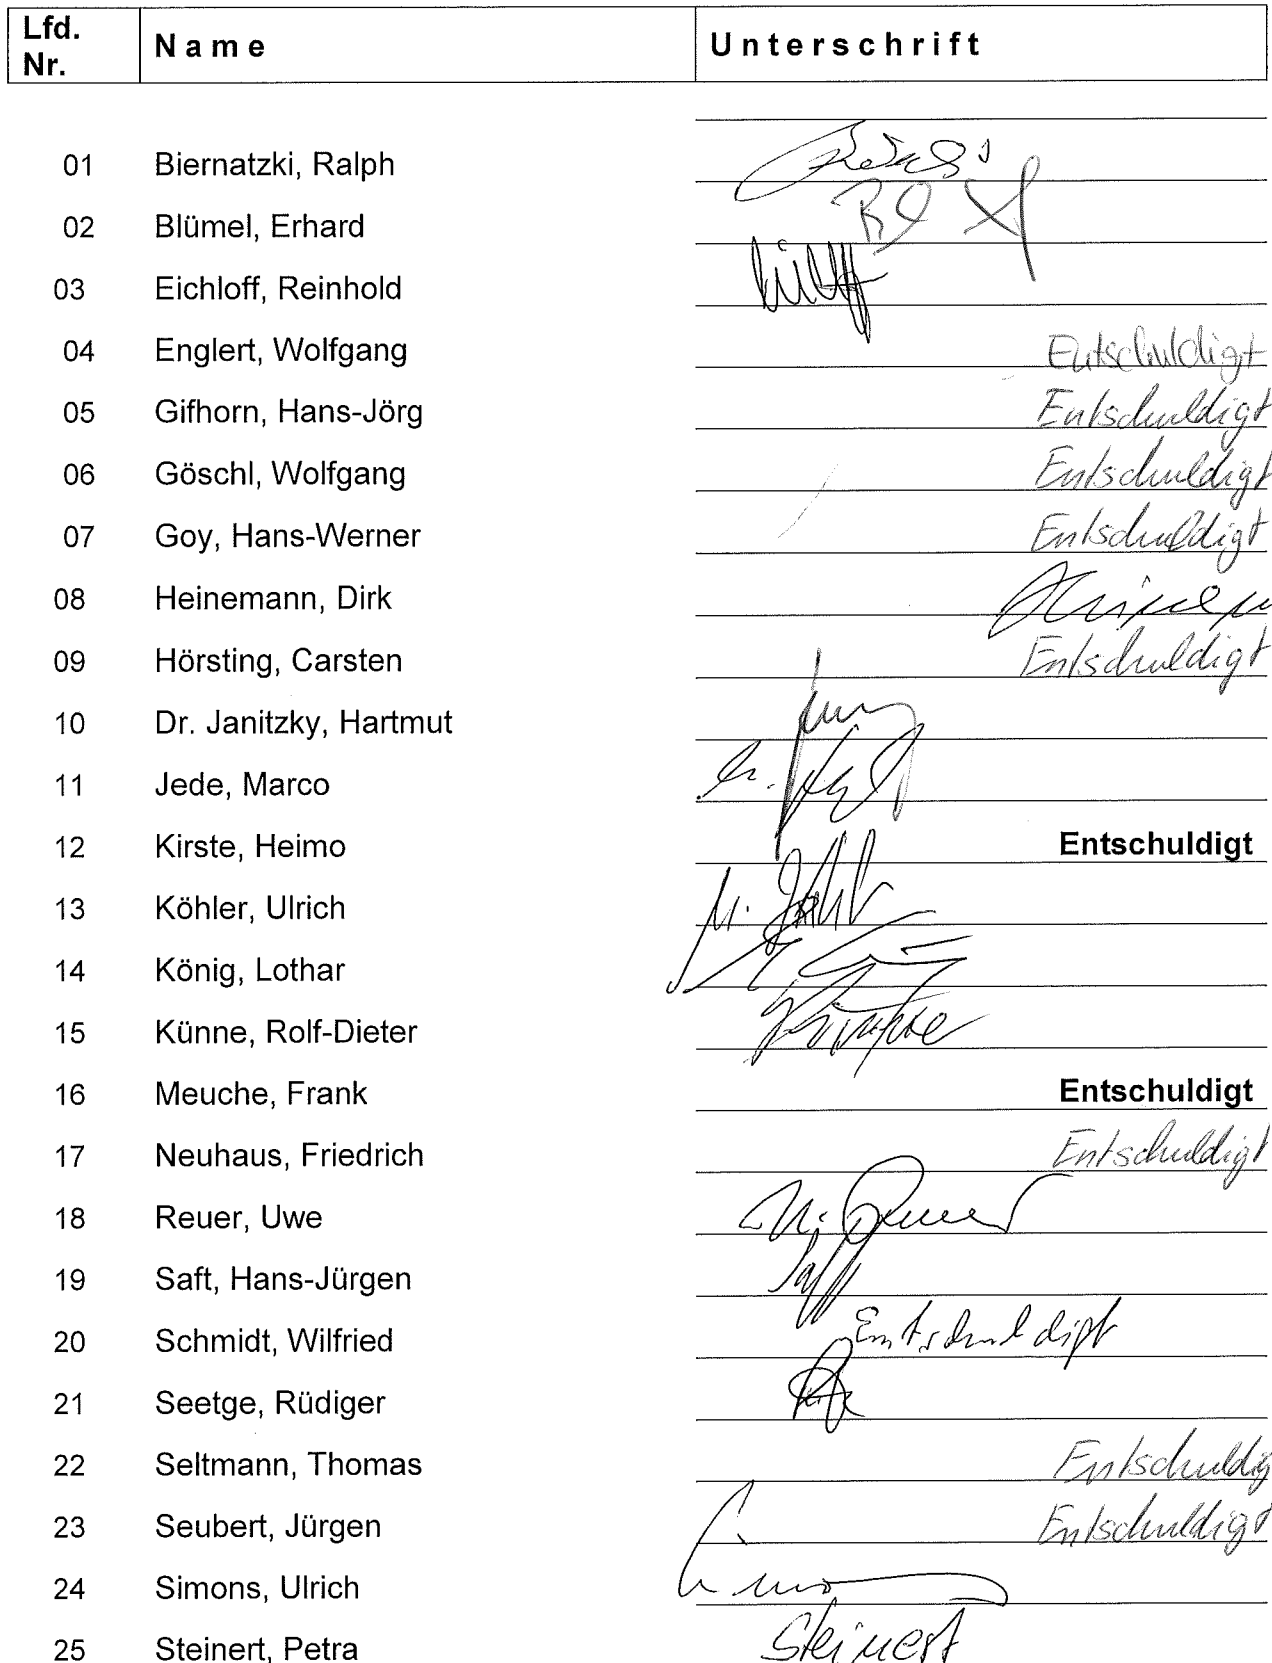 Lfd. Nr. Name Unterschrift
01 Biernatzki, Ralph
02 Blümel, Erhard
03 Eichloff, Reinhold
04 Englert, Wolfgang Entschuldigt
05 Gifhorn, Hans-Jörg Entschuldigt
06 Göschl, Wolfgang Entschuldigt
07 Goy, Hans-Werner Entschuldigt
08 Heinemann, Dirk
09 Hörsting, Carsten Entschuldigt
10 Dr. Janitzky, Hartmut
11 Jede, Marco
12 Kirste, Heimo Entschuldigt
13 Köhler, Ulrich
14 König, Lothar
15 Künne, Rolf-Dieter
16 Meuche, Frank Entschuldigt
17 Neuhaus, Friedrich Entschuldigt
18 Reuer, Uwe
19 Saft, Hans-Jürgen
20 Schmidt, Wilfried Entschuldigt
21 Seetge, Rüdiger
22 Seltmann, Thomas Entschuldig
23 Seubert, Jürgen Entschuldigt
24 Simons, Ulrich
25 Steinert, Petra Steinert